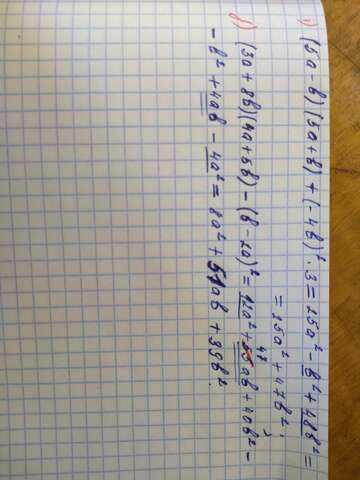 1) (5a - b)(5a + b) + (-4b)² · 3 = 25a² - b² + 48b² =
= 25a² + 47b².
б) (3a + 8b)(4a + 5b) - (b - 2a)² = 12a² + 47ab + 40b² -
- b² + 4ab - 4a² = 8a² + 51ab + 39b².